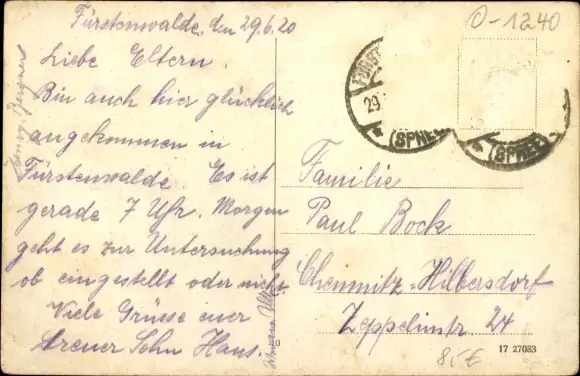 Fürstenwalde, den 29.6.20
Liebe Eltern.
Bin auch hier glücklich
angekommen in
Fürstenwalde. Es ist
gerade 7 Uhr. Morgen
geht es zur Untersuchung
ob eingestellt oder nicht
Viele Grüsse euer
treuer Sohn Hans.
O-1240
FÜRST
29.
(SPREE
(SPREE)
Familie
Paul Bock
Chemnitz-Hilbersdorf
Zeppelinstr 24
17 27083
8,- €